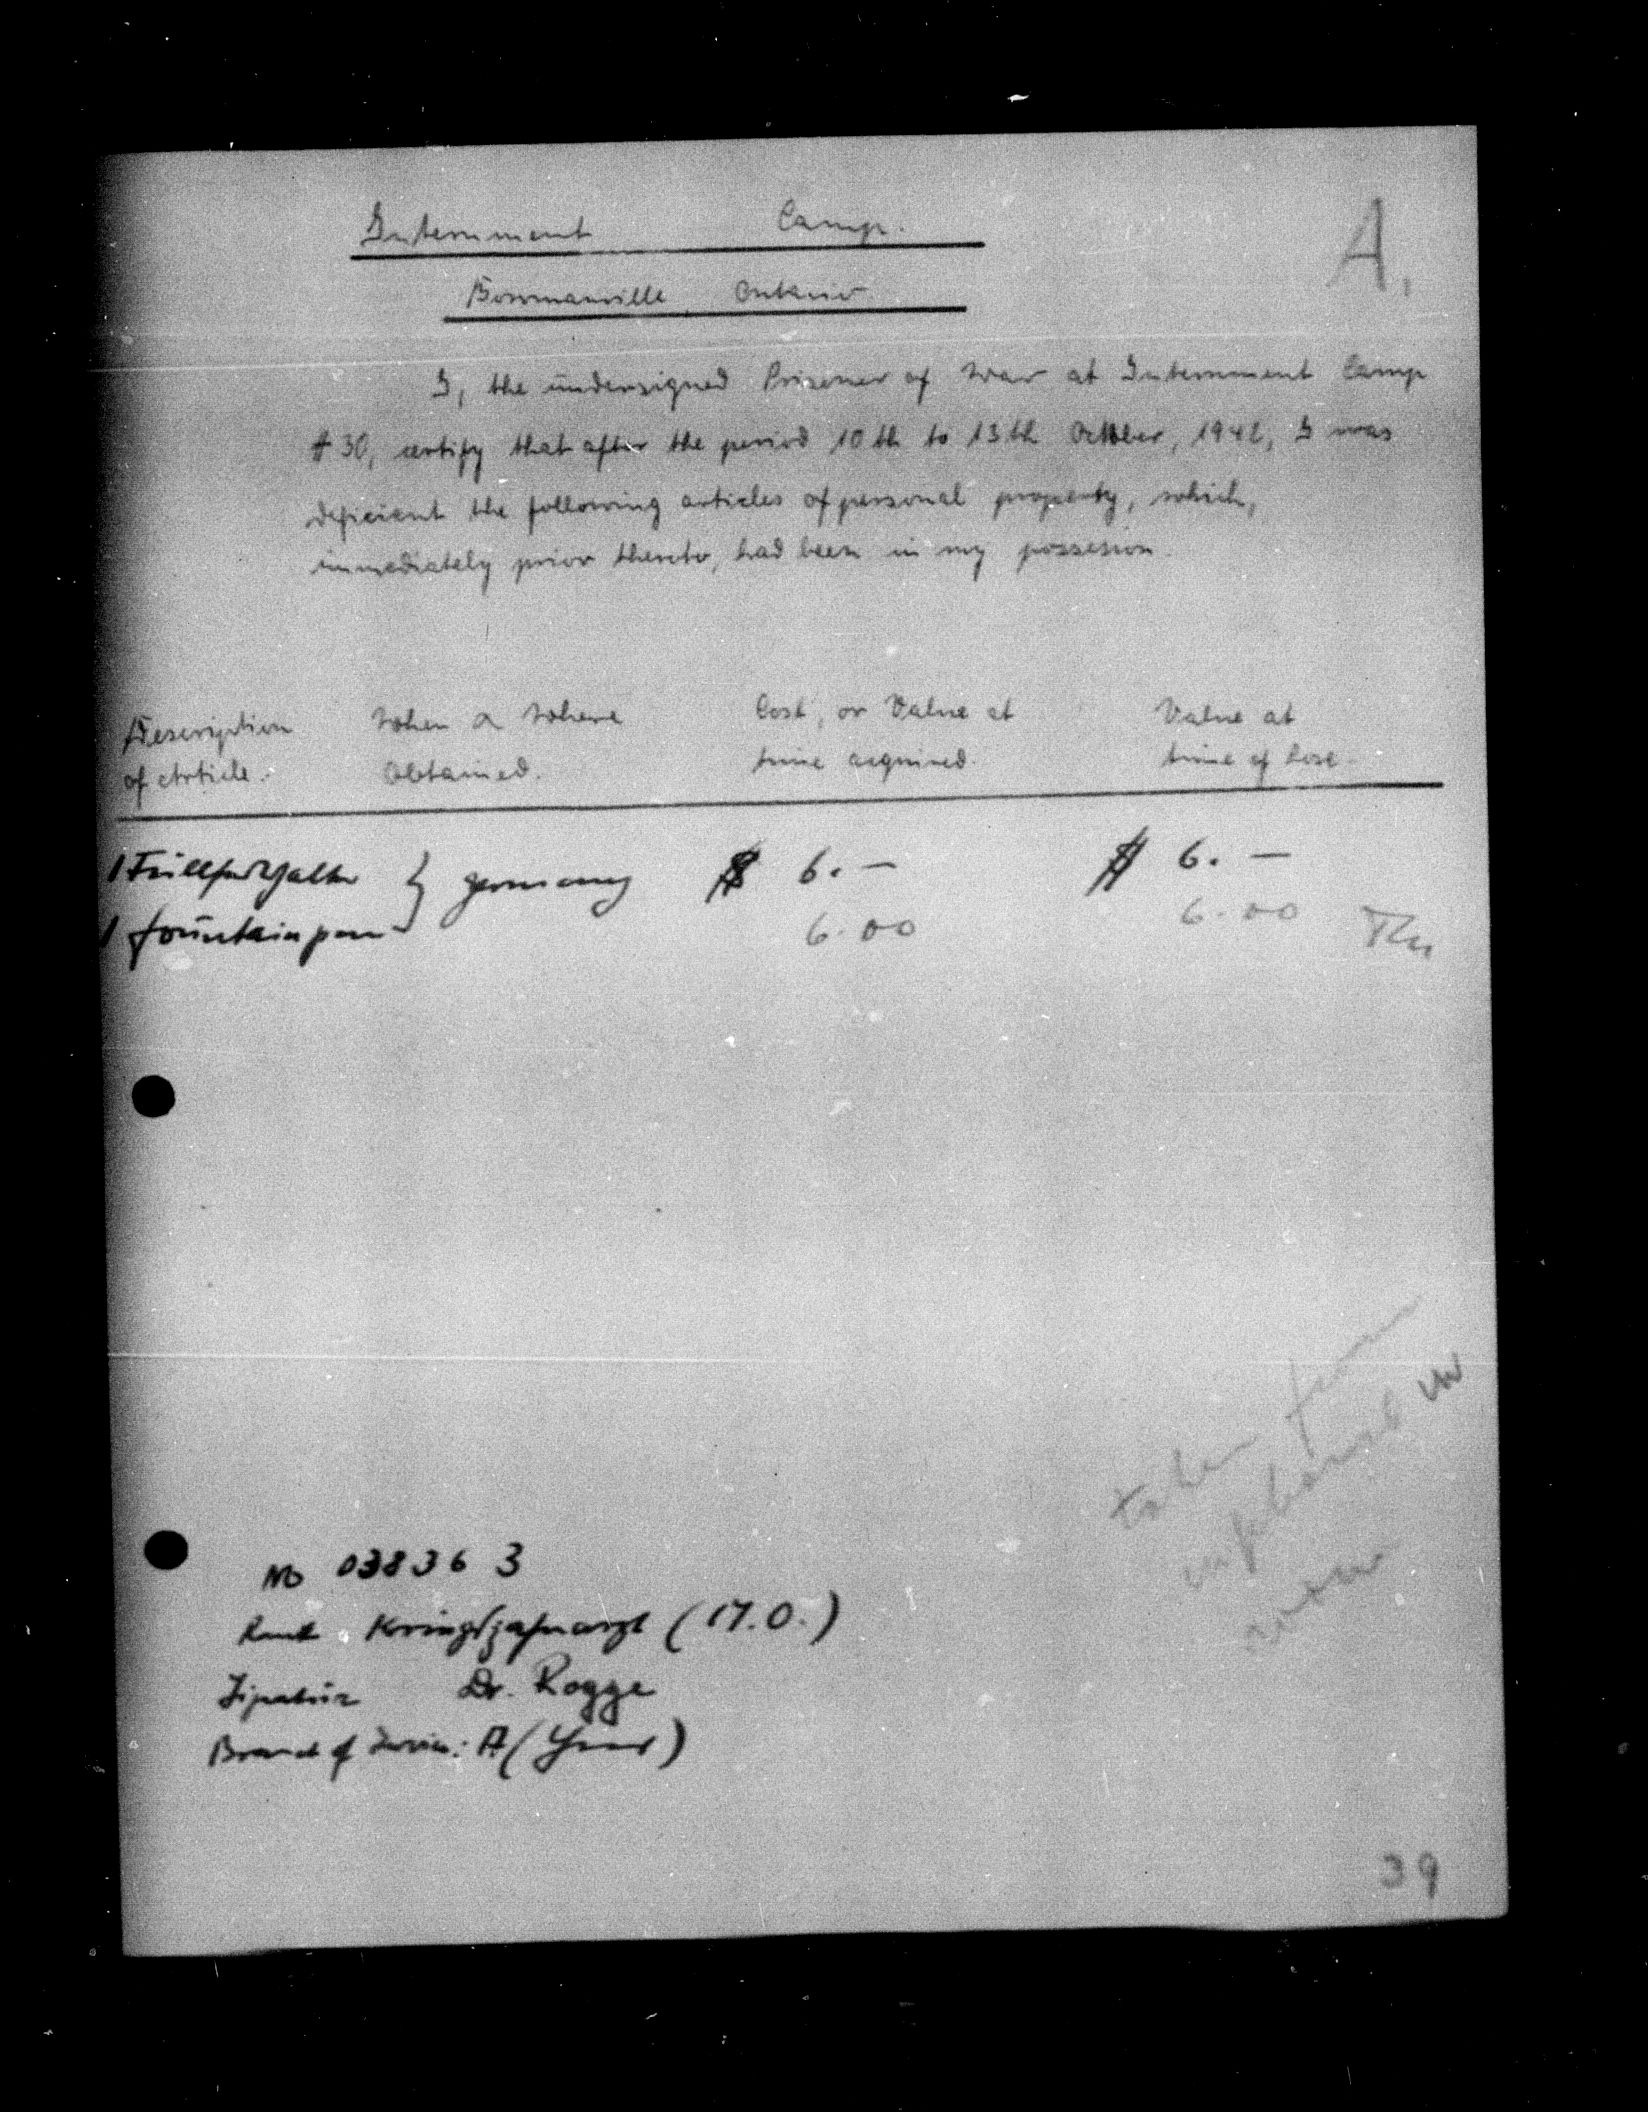 Internment Camp.
A.
Bowmanville Ontario
I, the undersigned Prisoner of War at Internment Camp
# 30, certify that after the period 10th to 13th October, 1942, I was
deficient the following articles of personal property, which,
immediately prior thereto, had been in my possesion.
Description When & Where Cost, or Value at Value at
of Article. Obtained. time acquired. time of Lose.
1 Füllfederhalter } germany $ 6.— $ 6.—
1 fountain pen 6.00 6.00
taken from
in
No 038363
Rank Kriegszahnarzt (M.O.)
Signature Dr. Rogge
Branch of Service: A
39